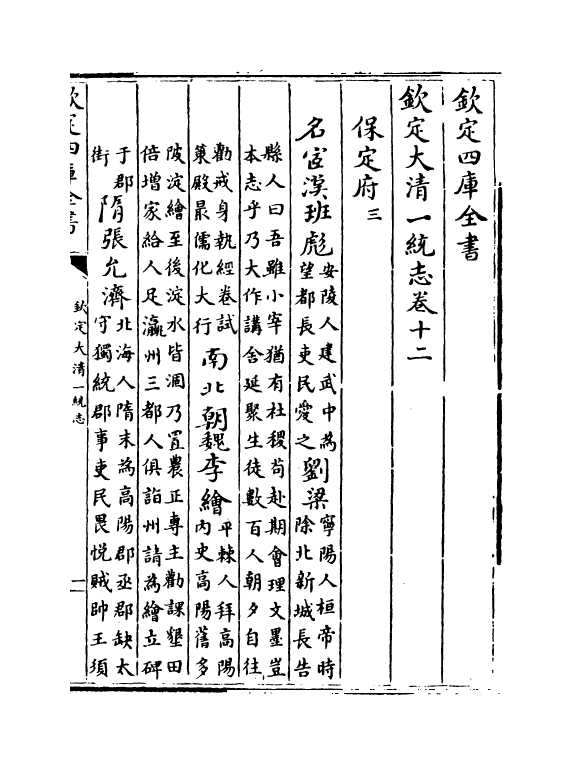 欽定四庫全書
欽定大清一統志卷十二
保定府三
名宦漢班彪安陵人建武中為望都長吏民愛之劉梁寧陽人桓帝時除北新城長告
縣人曰吾雖小宰猶有社稷苟赴期會理文墨豈
本志乎乃大作講舍延聚生徒數百人朝夕自往
勸戒身執經卷試策殿最儒化大行南北朝魏李繪平棘人拜高陽內史高陽舊多
陂淀繪至後淀水皆涸乃置農正專主勸課墾田
倍增家給人足瀛州三都人俱詣州請為繪立碑
于郡街隋張允濟北海人隋末為高陽郡丞郡缺太守獨統郡事吏民畏悅賊帥王須
欽定四庫全書
欽定大清一統志